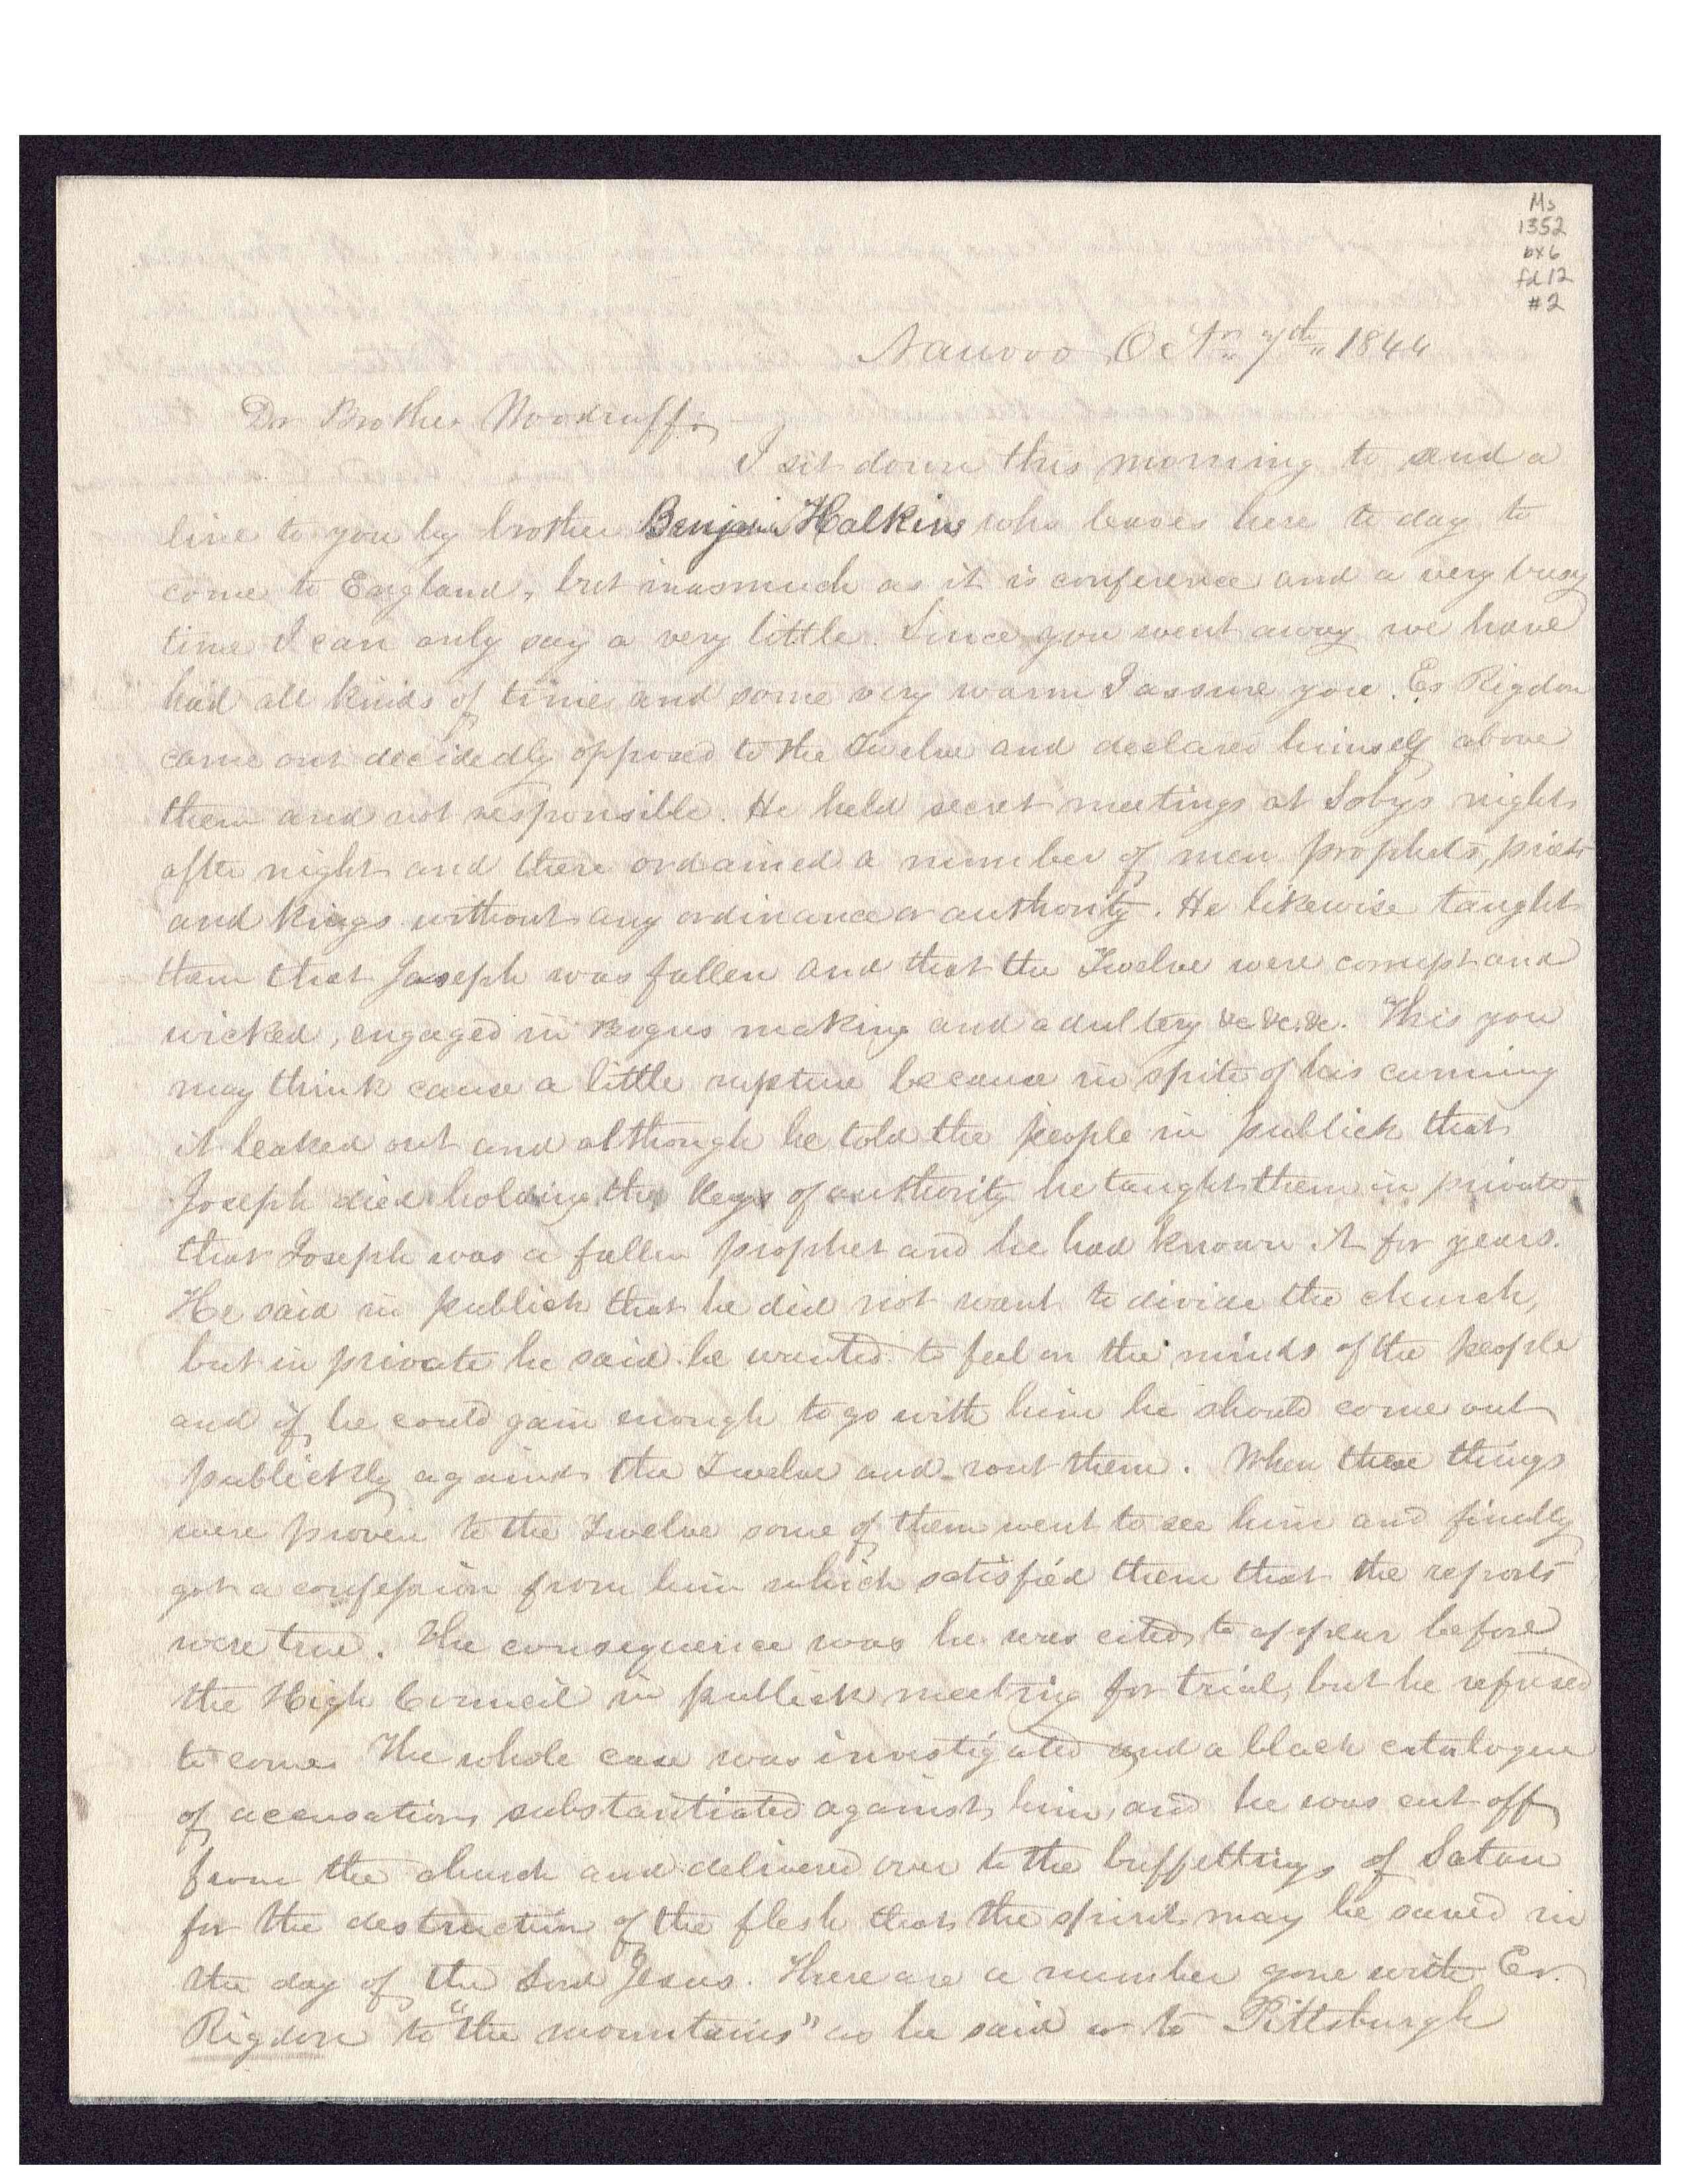 Ms
1352
bx 6
fd 12
#2
Nauvoo Octr 7th 1844
Dr Brother Woodruff,
I sit down this morning to send a
line to you by brother Benjamin Halkins who leaves here to day to
come to England, but inasmuch as it is conference and a very busy
time I can only say a very little. Since you went away we have
had all kinds of time and some very warm I assure you. Er Rigdon
came out decidedly opposed to the Twelve and declared himself above
them and not responsible. He held secret meetings at Sobys night
after night and there ordained a number of men prophets, priests
and Kings without any ordinance or authority. He likewise taught
them that Joseph was fallen and that the Twelve were corrupt and
wicked, engaged in Bogus making and adultery &c &c. &c. This you
may think cause a little rupture because in spite of his cunning
it leaked out and although he told the people in publick that
Joseph died holding the Keys of authority he taught them in private
that Joseph was a fallen prophet and he had known it for years.
He said in publick that he did not want to divide the church,
but in private he said he wanted to feel on the minds of the people
and if he could gain enough to go with him he should come out
publickly against the Twelve and rout them. When these things
were proven to the Twelve some of them went to see him and finally
got a confession from him which satisfied them that the reports
were true. The consequence was he was cited to appear before
the High Council in publick meeting for trial, but he refused
to come. The whole case was investigated and a black catalogue
of accusations substantiated against him, and he was cut off
from the church and delivered over to the buffettings of Satan
for the destruction of the flesh that the spirit may be saved in
the day of the Lord Jesus. There are a number gone with Er.
Rigdon to "the mountains" as he said or to Pittsburgh